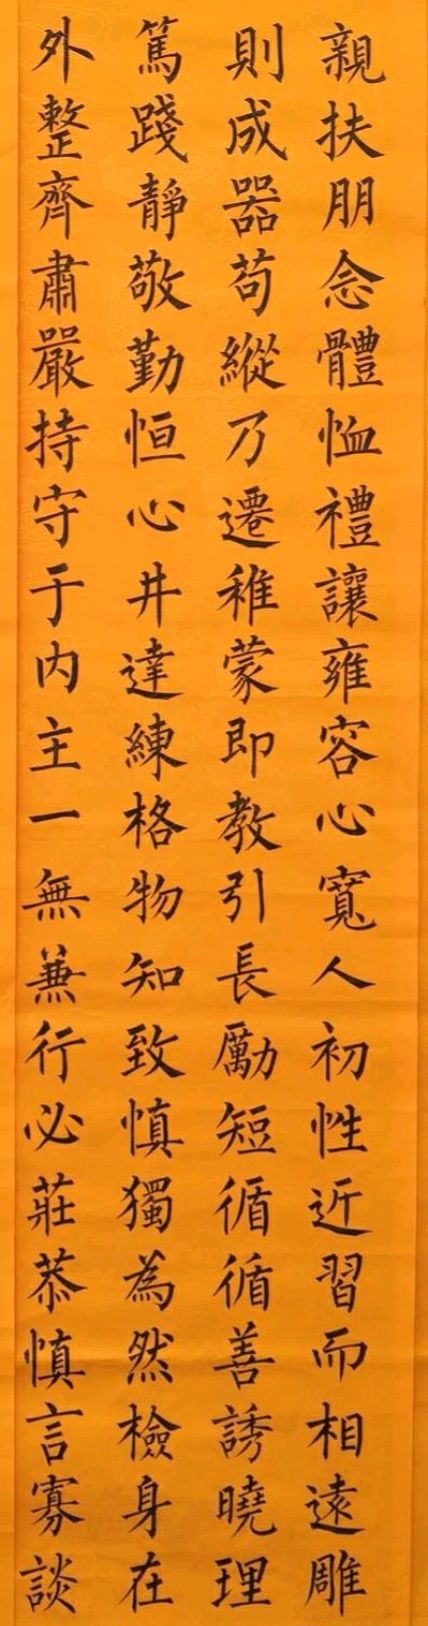 親扶朋念體恤禮讓雍容心寬人初性近習而相遠雕
則成器苟縱乃遷稚蒙即教引長勵短循循善誘曉理
篤踐靜敬勤恒心井達練格物知致慎獨為然檢身在
外整齊肅嚴持守于内主一無兼行必莊恭慎言寡談